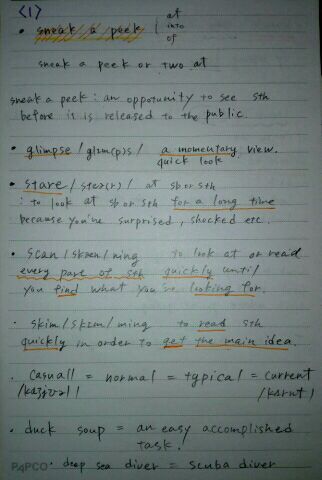 <1>
• sneak a peek | at
into
of
sneak a peek or two at
sneak a peek : an oppotunity to see sth
before it is released to the public.
• glimpse / glɪm(p)s / a momentary view.
quick look
• stare / steə(r) / at sb or sth
: to look at sb or sth for a long time
because you've surprised, shocked etc.
• scan / skæn / ning to look at or read
every part of sth quickly until
you find what you're looking for.
• skim / skɪm / ming to read sth
quickly in order to get the main idea.
• casuall = normal = typical = current
• duck soup = an easy accomplished
task.
PAPCO • deep sea diver = scuba diver